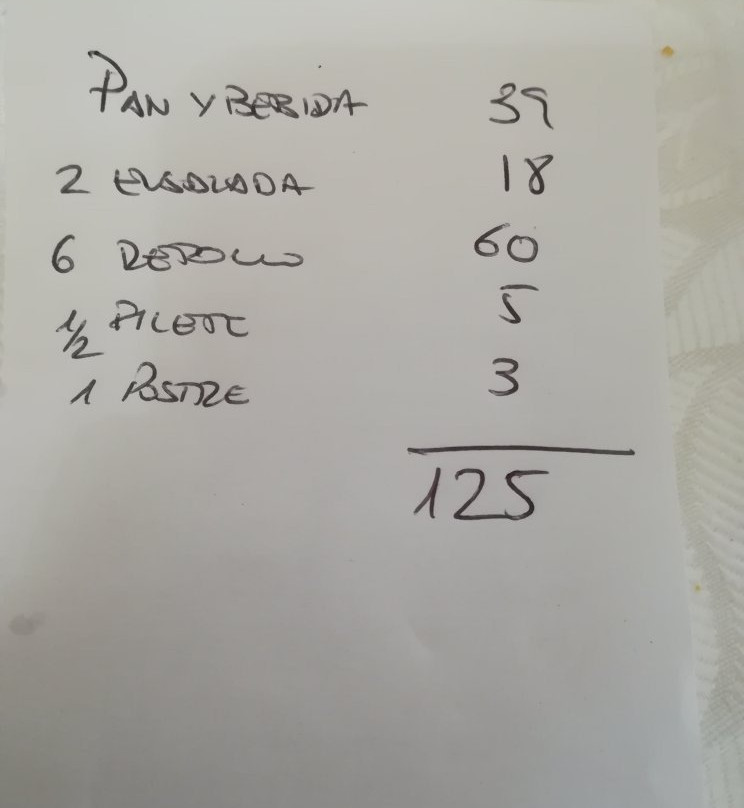 PAN Y BEBIDA 39
2 ENSALADA 18
6 REPOLLO 60
1/2 FILETE 5
1 POSTRE 3
125